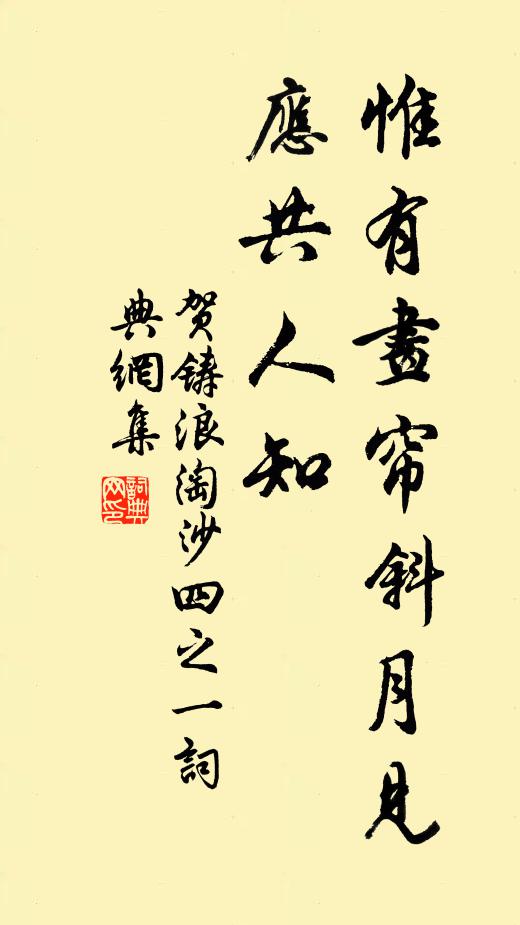 惟有畫帘斜月見
應共人知
贺鑄浪淘沙四之一詞
典網集
詞典
网印